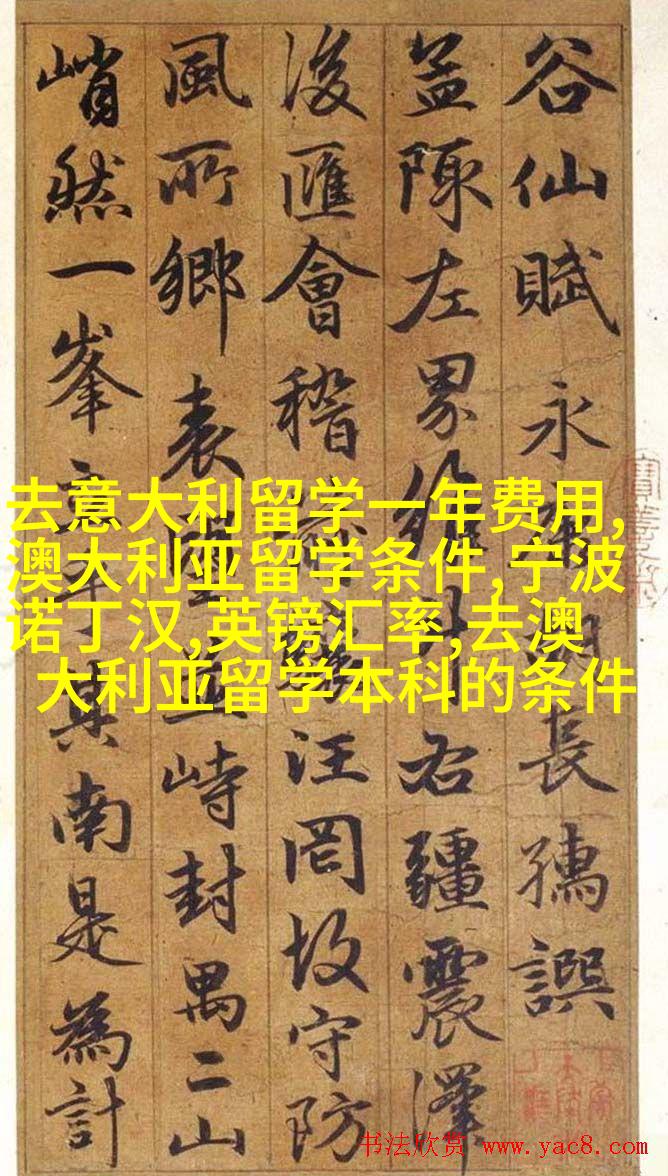 谷仙賦 永康胡長孺譔
陳左界升右疆震澤
後匯會稽汪罔守防
風所鄉表峙封禺二山
峭然一峯立于其南是為計
去意大利留学一年费用,
澳大利亚留学条件,宁波
诺丁汉,英镑汇率,去澳
大利亚留学本科的条件
书法欣赏 www.yac8.com